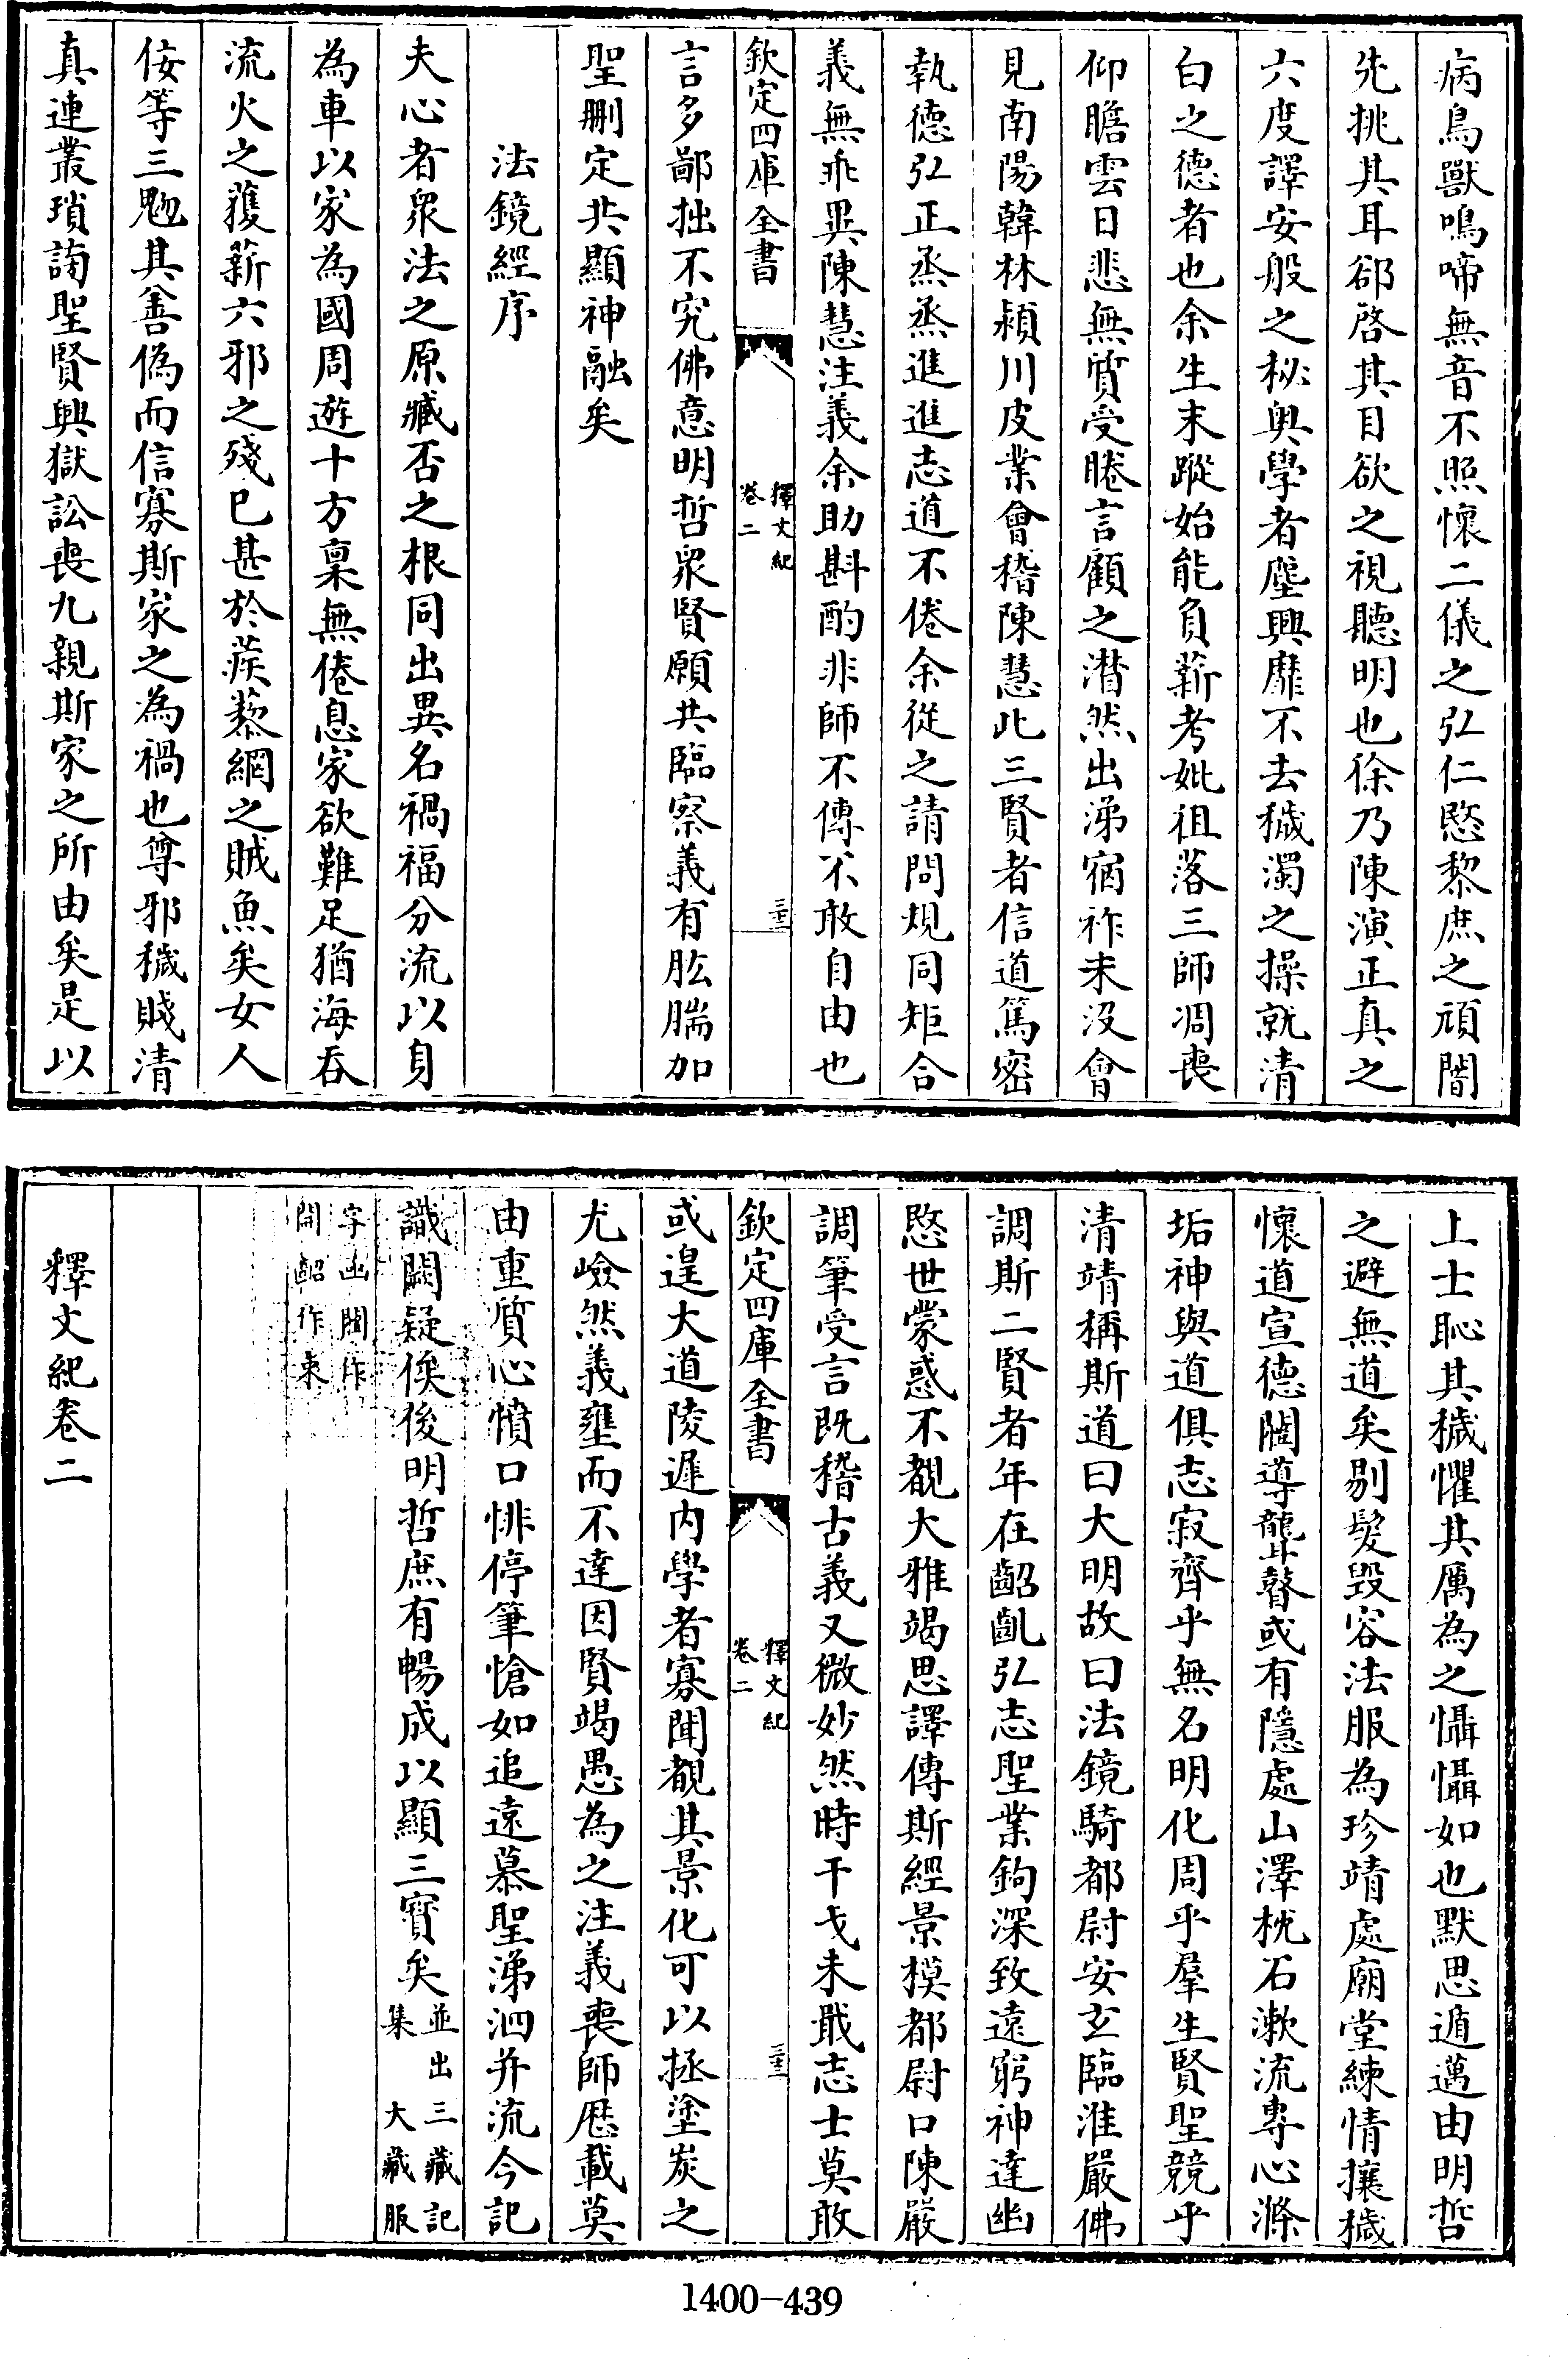 病鳥獸鳴啼無音不照懷二儀之弘仁愍黎庶之頑闇
先挑其耳郤啓其目欲之視聽明也徐乃陳演正真之
六度譯安般之秘奥學者塵興靡不去穢濁之操就清
白之德者也余生末蹤始能負薪考妣殂落三師凋喪
仰瞻雲日悲無質受睠言顧之潸然出涕宿祚未没會
見南陽韓林潁川皮業會稽陳慧此三賢者信道篤密
執德弘正烝烝進進志道不倦余從之請問規同矩合
義無乖異陳慧注義余助斟酌非師不傳不敢自由也
欽定四庫全書
釋文紀
卷二
三十三
言多鄙拙不究佛意明哲衆賢願共臨察義有肬腨加
聖刪定共顯神融矣
法鏡經序
夫心者衆法之原臧否之根同出異名禍福分流以身
為車以家為國周遊十方稟無倦息家欲難足猶海吞
流火之蒦薪六邪之殘已甚於蒺藜網之賊魚矣女人
佞等三魊其善偽而信寡斯家之為禍也尊邪穢賤清
真連叢瑣謗聖賢興獄訟喪九親斯家之所由矣是以
上士恥其穢懼其厲為之懾懾如也默思遁邁由明哲
之避無道矣剔髮毀容法服為珍靖處廟堂練情攘穢
懷道宣德闓導聾瞽或有隱處山澤枕石漱流專心滌
垢神與道俱志寂齊乎無名明化周乎羣生賢聖競乎
清靖稱斯道曰大明故曰法鏡騎都尉安玄臨淮嚴佛
調斯二賢者年在齠齓弘志聖業鉤深致遠窮神達幽
愍世蒙惑不覩大雅竭思譯傳斯經景模都尉口陳嚴
調筆受言既稽古義又微妙然時干戈未戢志士莫敢
欽定四庫全書
釋文紀
卷二
三十三
或遑大道陵遲内學者寡聞覩其景化可以拯塗炭之
尤嶮然義壅而不達因賢竭愚為之注義喪師歴載莫
由重質心憤口悱停筆愴如追遠慕聖涕泗并流今記
識闕疑俟後明哲庶有暢成以顯三寳矣並出三藏記
集 大藏服
字函闓作
開齠作束
釋文紀卷二
1400-439